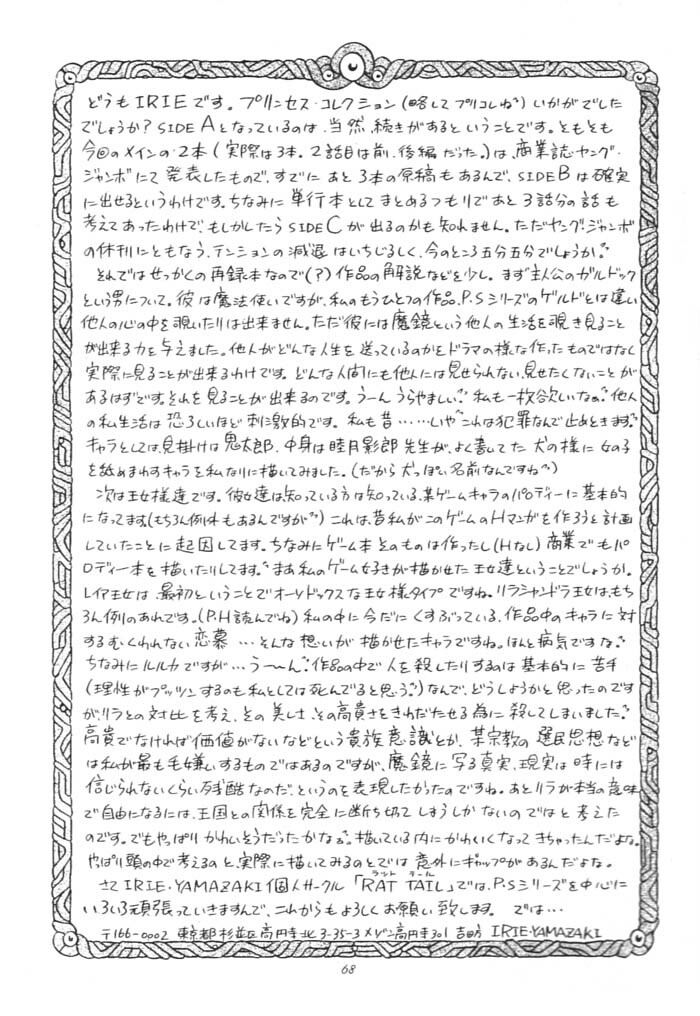 どうもIRIEです。プリンセス・コレクション(略してプリコレね)いかがでした
でしょうか?SIDE Aとなっているのは、当然、続きがあるということです。ともとも
今回のメインの2本(実際は3本。2話目は前、後編だった。)は、商業誌・ヤング・
ジャンボにて発表したもので、すでにあと3本の原稿もあるんで、SIDE Bは確実
に出せるというわけです。ちなみに単行本としてまとめるつもりであと3話分の話も
考えてあったわけで、もしかしたらSIDE Cが出るのかも知れません。ただヤング・ジャンボ
の休刊にともなう、テンションの減退はいちじるしく、今のところ五分五分でしょうか。
それではせっかくの再録本なので(?)作品の解説などを少し。まず主人公のガルドック
という男について。彼は魔法使いですが、私のもうひとつの作品、P.Sシリーズのゲルドとは違い
他人の心の中を覗いたりは出来ません。ただ彼には魔鏡という他人の生活を覗き見ること
が出来る力を与えました。他人がどんな人生を送っているのかをドラマの様な作ったものではなく
実際に見ることが出来るわけです。どんな人間にも他人には見せられない、見せたくないことが
あるはずです。それを見ることが出来るのです。うーん うらやましい。私も一枚欲しいなあ。他人
の私生活は恐ろしいほど刺激的です。私も昔……いや これは犯罪なんで止めときます。
キャラとしては、見掛けは鬼太郎、中身は睦月影郎先生が、よく書してた犬の様に女の子
を舐めまわすキャラを私なりに描いてみました。(だから犬っぽい名前なんですね)
次は王女様達です。彼女達は知っている方は知っている、某ゲームキャラのパロディーに基本的
になってます。(もちろん例外もあるんですが)これは、昔私がこのゲームのHマンガを作ろうと計画
していたことに起因してます。ちなみにゲーム本そのものは作ったし(Hなし)商業でもパ
ロディー本を描いたりしてます。まあ私のゲーム好きが描かせた王女達ということでしょうか。
レイア王女は最初ということでオーソドックスな王女様タイプですね。リラシャンドラ王女は、もち
ろん例のあれです。(P.H読んでね)私の中に今だにくすぶっている、作品中のキャラに対
するむくわれない恋慕…そんな想いが描かせたキャラですね。ほんと病気ですな。
ちなみにルルカですが…うーん。作品の中で人を殺したりするのは基本的に苦手
(理性がプッツンするのも私としては死んでると思う。)なんで、どうしようかと思ったのです
がリラとの対比を考え、その美しさ、その高貴さをきわだたせる為に殺してしまいました。
高貴でなければ価値がないなどという貴族意識とか、某宗教の選民思想など
は私が最も毛嫌いするものではあるのですが、魔鏡に写る真実、現実は時には
信じられないくらい残酷なのだ、というのを表現したかったのですね。あとリラが本当の意味
で自由になるには、王国との関係を完全に断ち切てしまうしかないのではと考えた
のです。でもやっぱりかわいそうだったかなぁ。描いている内にかわいくなってきちゃったんだよな。
やぱり頭の中で考えるのと、実際に描いてみるのとでは意外にギャップがあるんだよな。
さてIRIE・YAMAZAKI個人サークル「RAT TAIL」では、P.Sシリーズを中心に
ラット テール
いろいろ頑張っていきますんで、これからもよろしくお願い致します。 では…
〒166-0002 東京都杉並区高円寺北3-35-3メゾン高円寺301 吉田方 IRIE・YAMAZAKI
68